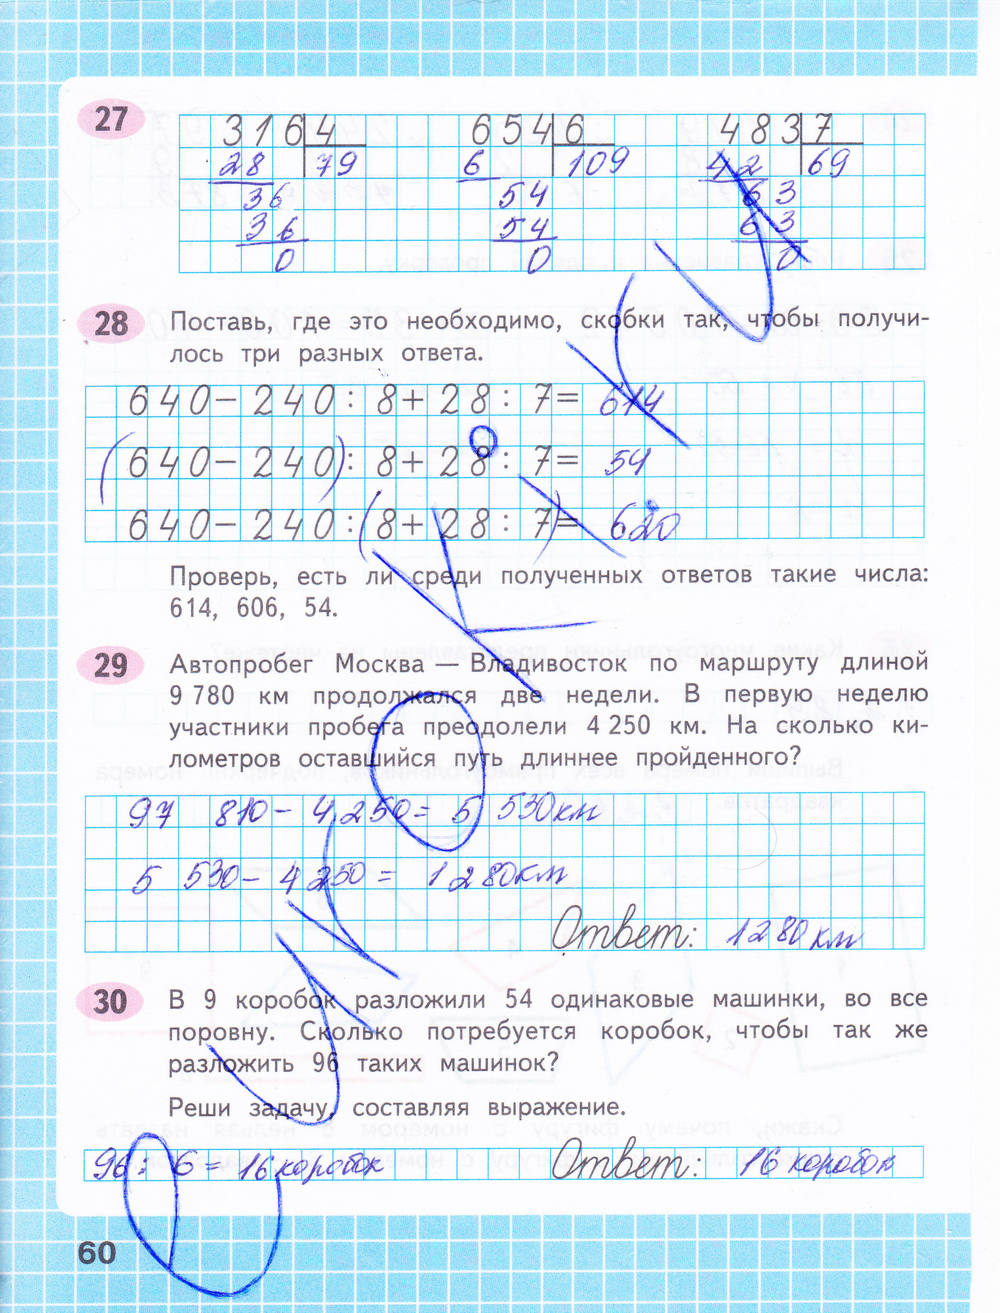 27
316 4   654 6   483 7
28 79   6 109   42 69
36   54   63
36   54   63
0   0   0
28 Поставь, где это необходимо, скобки так, чтобы получи-
лось три разных ответа.
640 - 240 : 8 + 28 : 7 = 614
(640 - 240) : 8 + 28 : 7 = 54
640 - 240 : (8 + 28 : 7) = 620
Проверь, есть ли среди полученных ответов такие числа:
614, 606, 54.
29 Автопробег Москва — Владивосток по маршруту длиной
9 780 км продолжался две недели. В первую неделю
участники пробега преодолели 4 250 км. На сколько ки-
лометров оставшийся путь длиннее пройденного?
97 810 - 4 250 = 5 530 км
5 530 - 4 250 = 1 280 км
Ответ: 1280 км
30 В 9 коробок разложили 54 одинаковые машинки, во все
поровну. Сколько потребуется коробок, чтобы так же
разложить 96 таких машинок?
Реши задачу, составляя выражение.
96 : 6 = 16 коробок Ответ: 16 коробок
60